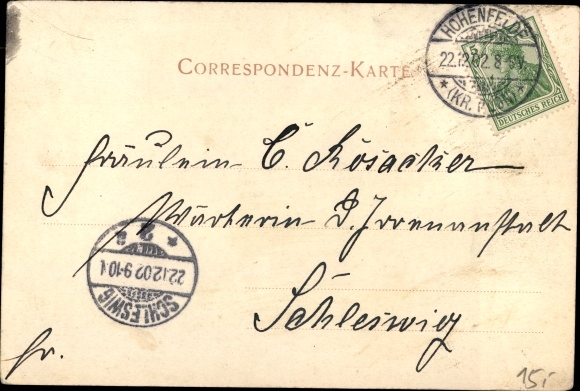 CORRESPONDENZ-KARTE
HOHENFELDE
22.12.02 8-9V.
* (KR. PLÖN) *
5
DEUTSCHES REICH
Fräulein C. Rösacker
Wärterin d. Irrenanstalt
Schleswig
fr.
SCHLESWIG
22.12.02 9-10
* 2 a
15,-